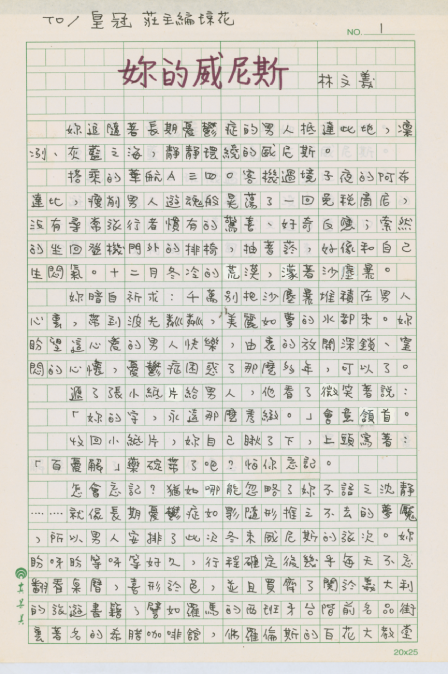 TO／皇冠 莊主編琼花
NO. 1
妳的威尼斯 林文義
妳追隨著長期憂鬱症的男人抵達此地，凜
冽、灰藍之海，靜靜環繞的威尼斯。
搭乘的華航A三四〇客機過境子夜的阿布
達比，瘦削男人遊魂般晃蕩了一回免稅商店，
沒有尋常旅行者慣有的驚喜、好奇反應；索然
的坐回登機門外的排椅，抽著菸，好像和自己
生悶氣。十二月冬冷的荒漠，濛著沙塵暴。
妳暗自祈求：千萬別把沙塵暴堆積在男人
心裏，帶到波光粼粼，美麗如夢的水都來。妳
盼望這心愛的男人快樂，由衷的放開深鎖、窒
悶的心懷，憂鬱症困惑了那麼多年，可以了。
遞了張小紙片給男人，他看了微笑著說：
「妳的字，永遠那麼秀緻。」會意頷首。
收回小紙片，妳自己瞅了下，上頭寫著：
「百憂解」藥碇帶了吧？怕你忘記。
怎會忘記？猶如哪能忽略了妳不語之沈靜
……就像長期憂鬱症如影隨形推之不去的夢魘
，所以男人安排了此次冬末威尼斯的旅次。妳
盼呀盼等呀等好久，行程確定後幾乎每天不忘
翻看桌曆，喜形於色，並且買齊了關於義大利
的旅遊書籍，譬如羅馬的西班牙台階前名品街
裏著名的希臘咖啡館，佛羅倫斯的百花大教堂
20x25